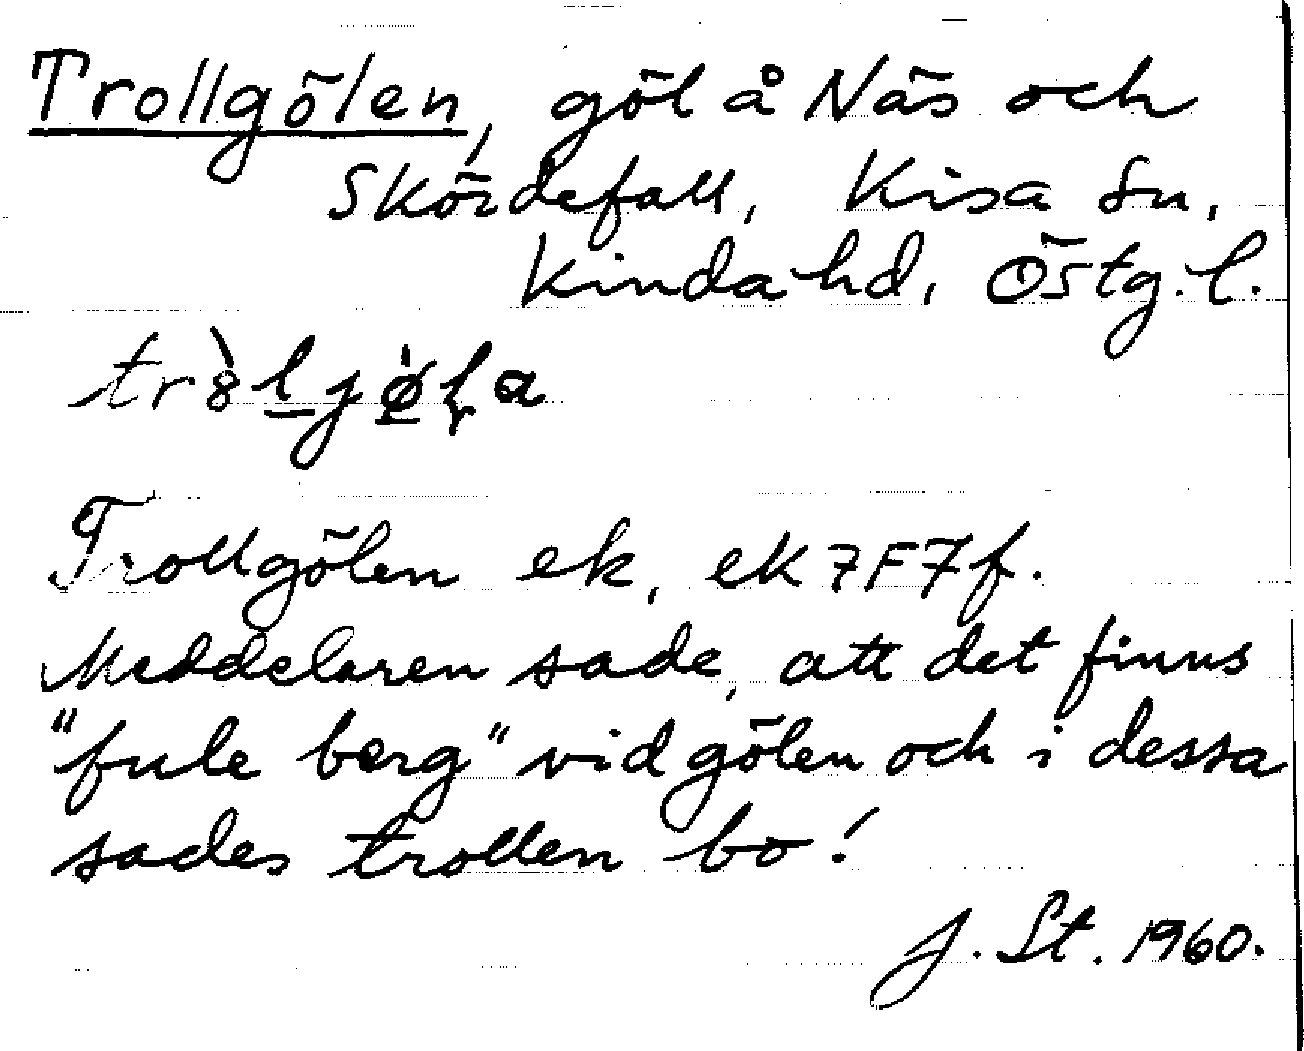 Trollgölen, göl å Näs och
Skördefall, Kisa sn,
Kinda hd, Östg. l.
Trollgölen ek, ek 7F7f.
Meddelaren sade, att det finns
"fule berg" vid gölen och i dessa
sades trollen bo!
J. St. 1960.